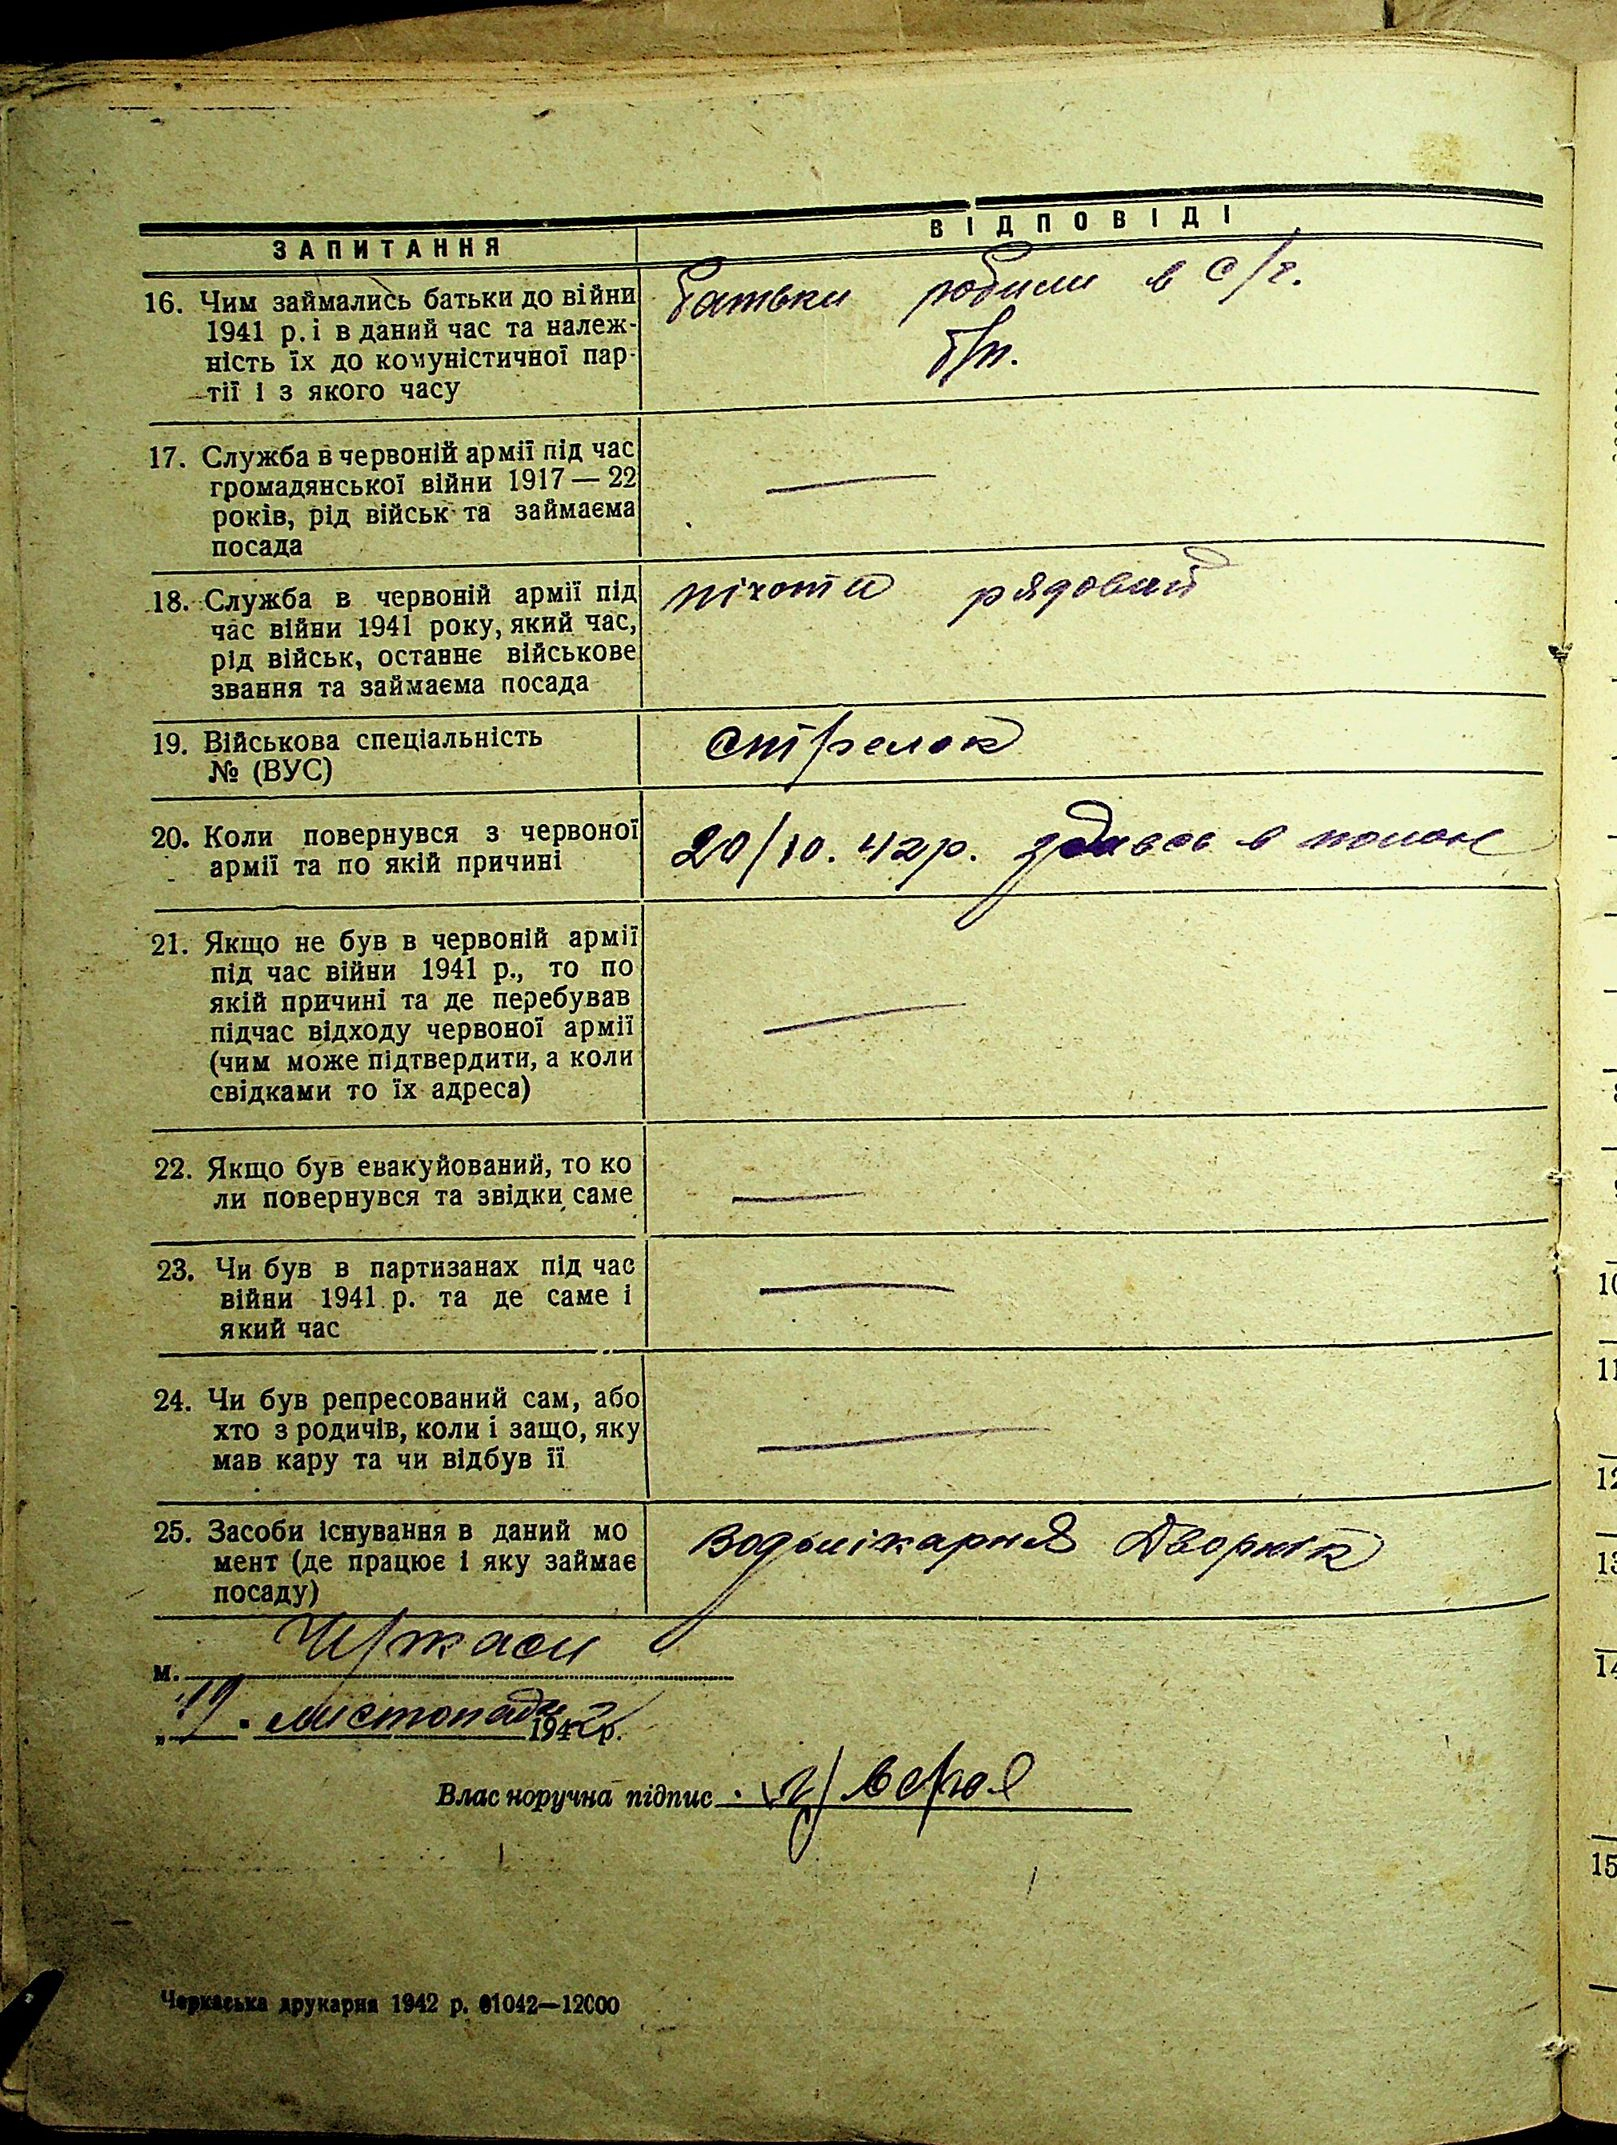 ЗАПИТАННЯ ВІДПОВІДІ
16. Чим займались батьки до війни
1941 р. і в даний час та належ-
ність їх до комуністичної пар-
тії і з якого часу
батьки робили в с/г.
б/п.
17. Служба в червоній армії під час
громадянської війни 1917 — 22
років, рід військ та займаєма
посада
—
18. Служба в червоній армії під
час війни 1941 року, який час,
рід військ, останнє військове
звання та займаєма посада
піхота рядовий
19. Військова спеціальність
№ (ВУС)
стрелок
20. Коли повернувся з червоної
армії та по якій причині
20/10. 42р. здавсь в полон
21. Якщо не був в червоній армії
під час війни 1941 р., то по
якій причині та де перебував
підчас відходу червоної армії
(чим може підтвердити, а коли
свідками то їх адреса)
—
22. Якщо був евакуйований, то ко
ли повернувся та звідки саме
—
23. Чи був в партизанах під час
війни 1941 р. та де саме і
який час
—
24. Чи був репресований сам, або
хто з родичів, коли і защо, яку
мав кару та чи відбув її
—
25. Засоби існування в даний мо
мент (де працює і яку займає
посаду)
Водолікарня Дворнік
м. Черкаси
листопада 1942р.
Власноручна підпис
Черкаська друкарня 1942 р. 01042—12000
10
11
12
13
14
15